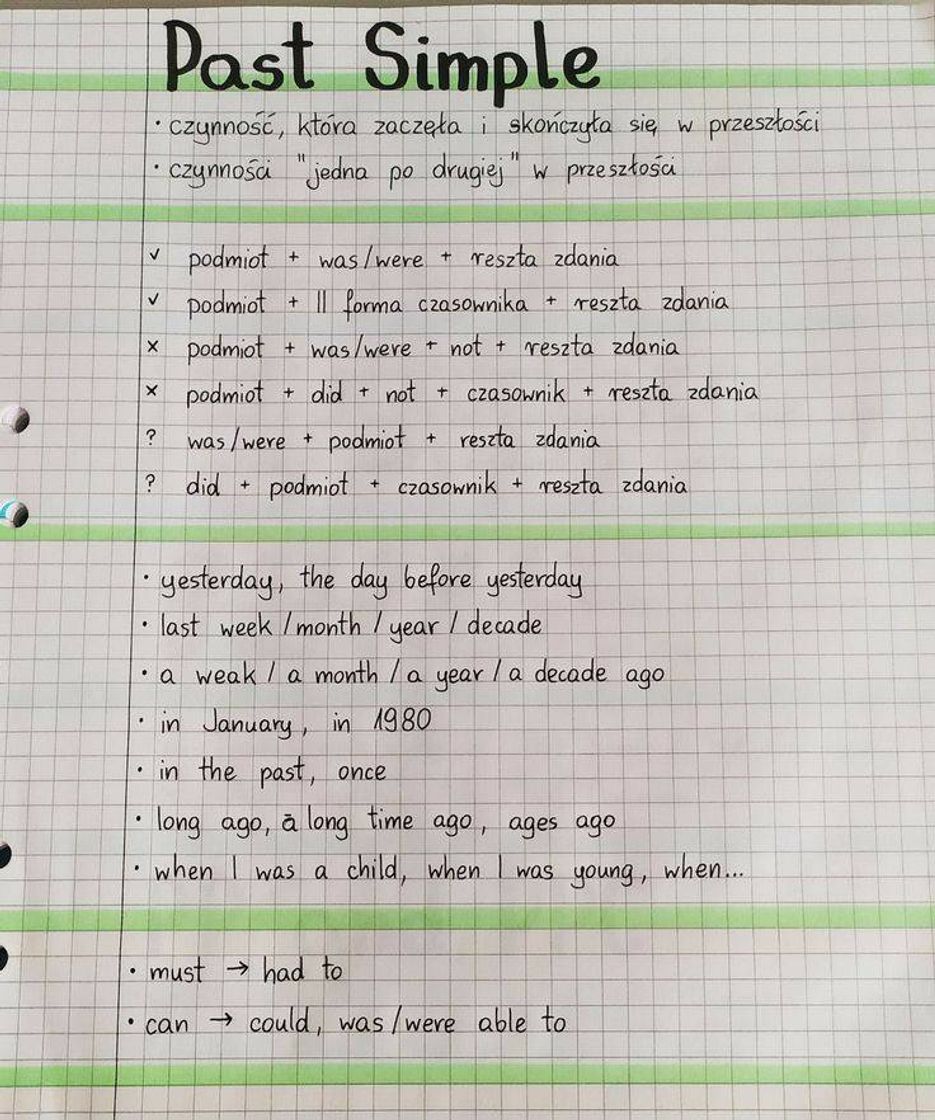 Past Simple
· czynność, która zaczęła i skończyła się w przeszłości
· czynności "jedna po drugiej" w przeszłości
✓ podmiot + was/were + reszta zdania
✓ podmiot + II forma czasownika + reszta zdania
× podmiot + was/were + not + reszta zdania
× podmiot + did + not + czasownik + reszta zdania
? was/were + podmiot + reszta zdania
? did + podmiot + czasownik + reszta zdania
· yesterday, the day before yesterday
· last week / month / year / decade
· a weak / a month / a year / a decade ago
· in January, in 1980
· in the past, once
· long ago, a long time ago, ages ago
· when I was a child, when I was young, when...
· must → had to
· can → could, was/were able to